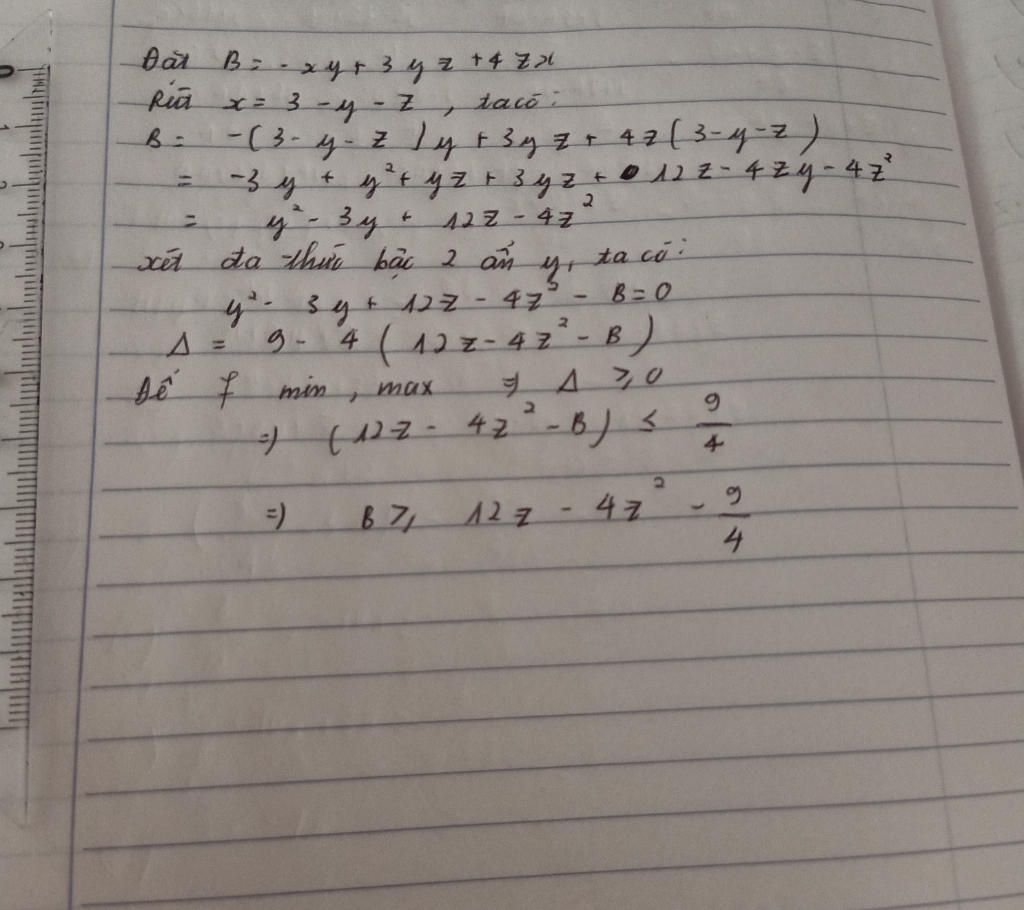 Đặt B = - xy + 3yz + 4zx
Rút x = 3 - y - z , ta có:
B = -(3 - y - z)y + 3yz + 4z(3 - y - z)
= -3y + y² + yz + 3yz + 12z - 4zy - 4z²
= y² - 3y + 12z - 4z²
xét đa thức bậc 2 ẩn y, ta có:
y² - 3y + 12z - 4z² - B = 0
Δ = 9 - 4(12z - 4z² - B)
Để f min, max => Δ ≥ 0
=> (12z - 4z² - B) ≤ 9/4
=> B ≥ 12z - 4z² - 9/4